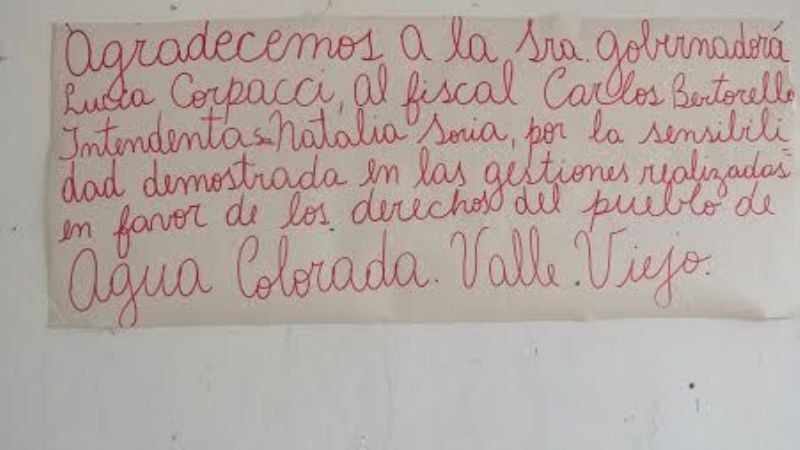 Agradecemos a la Sra. gobernadora
Lucía Corpacci, al fiscal Carlos Bertorello
Intendenta Natalia Soria, por la sensibili
dad demostrada en las gestiones realizadas
en favor de los derechos del pueblo de
Agua Colorada. Valle Viejo.